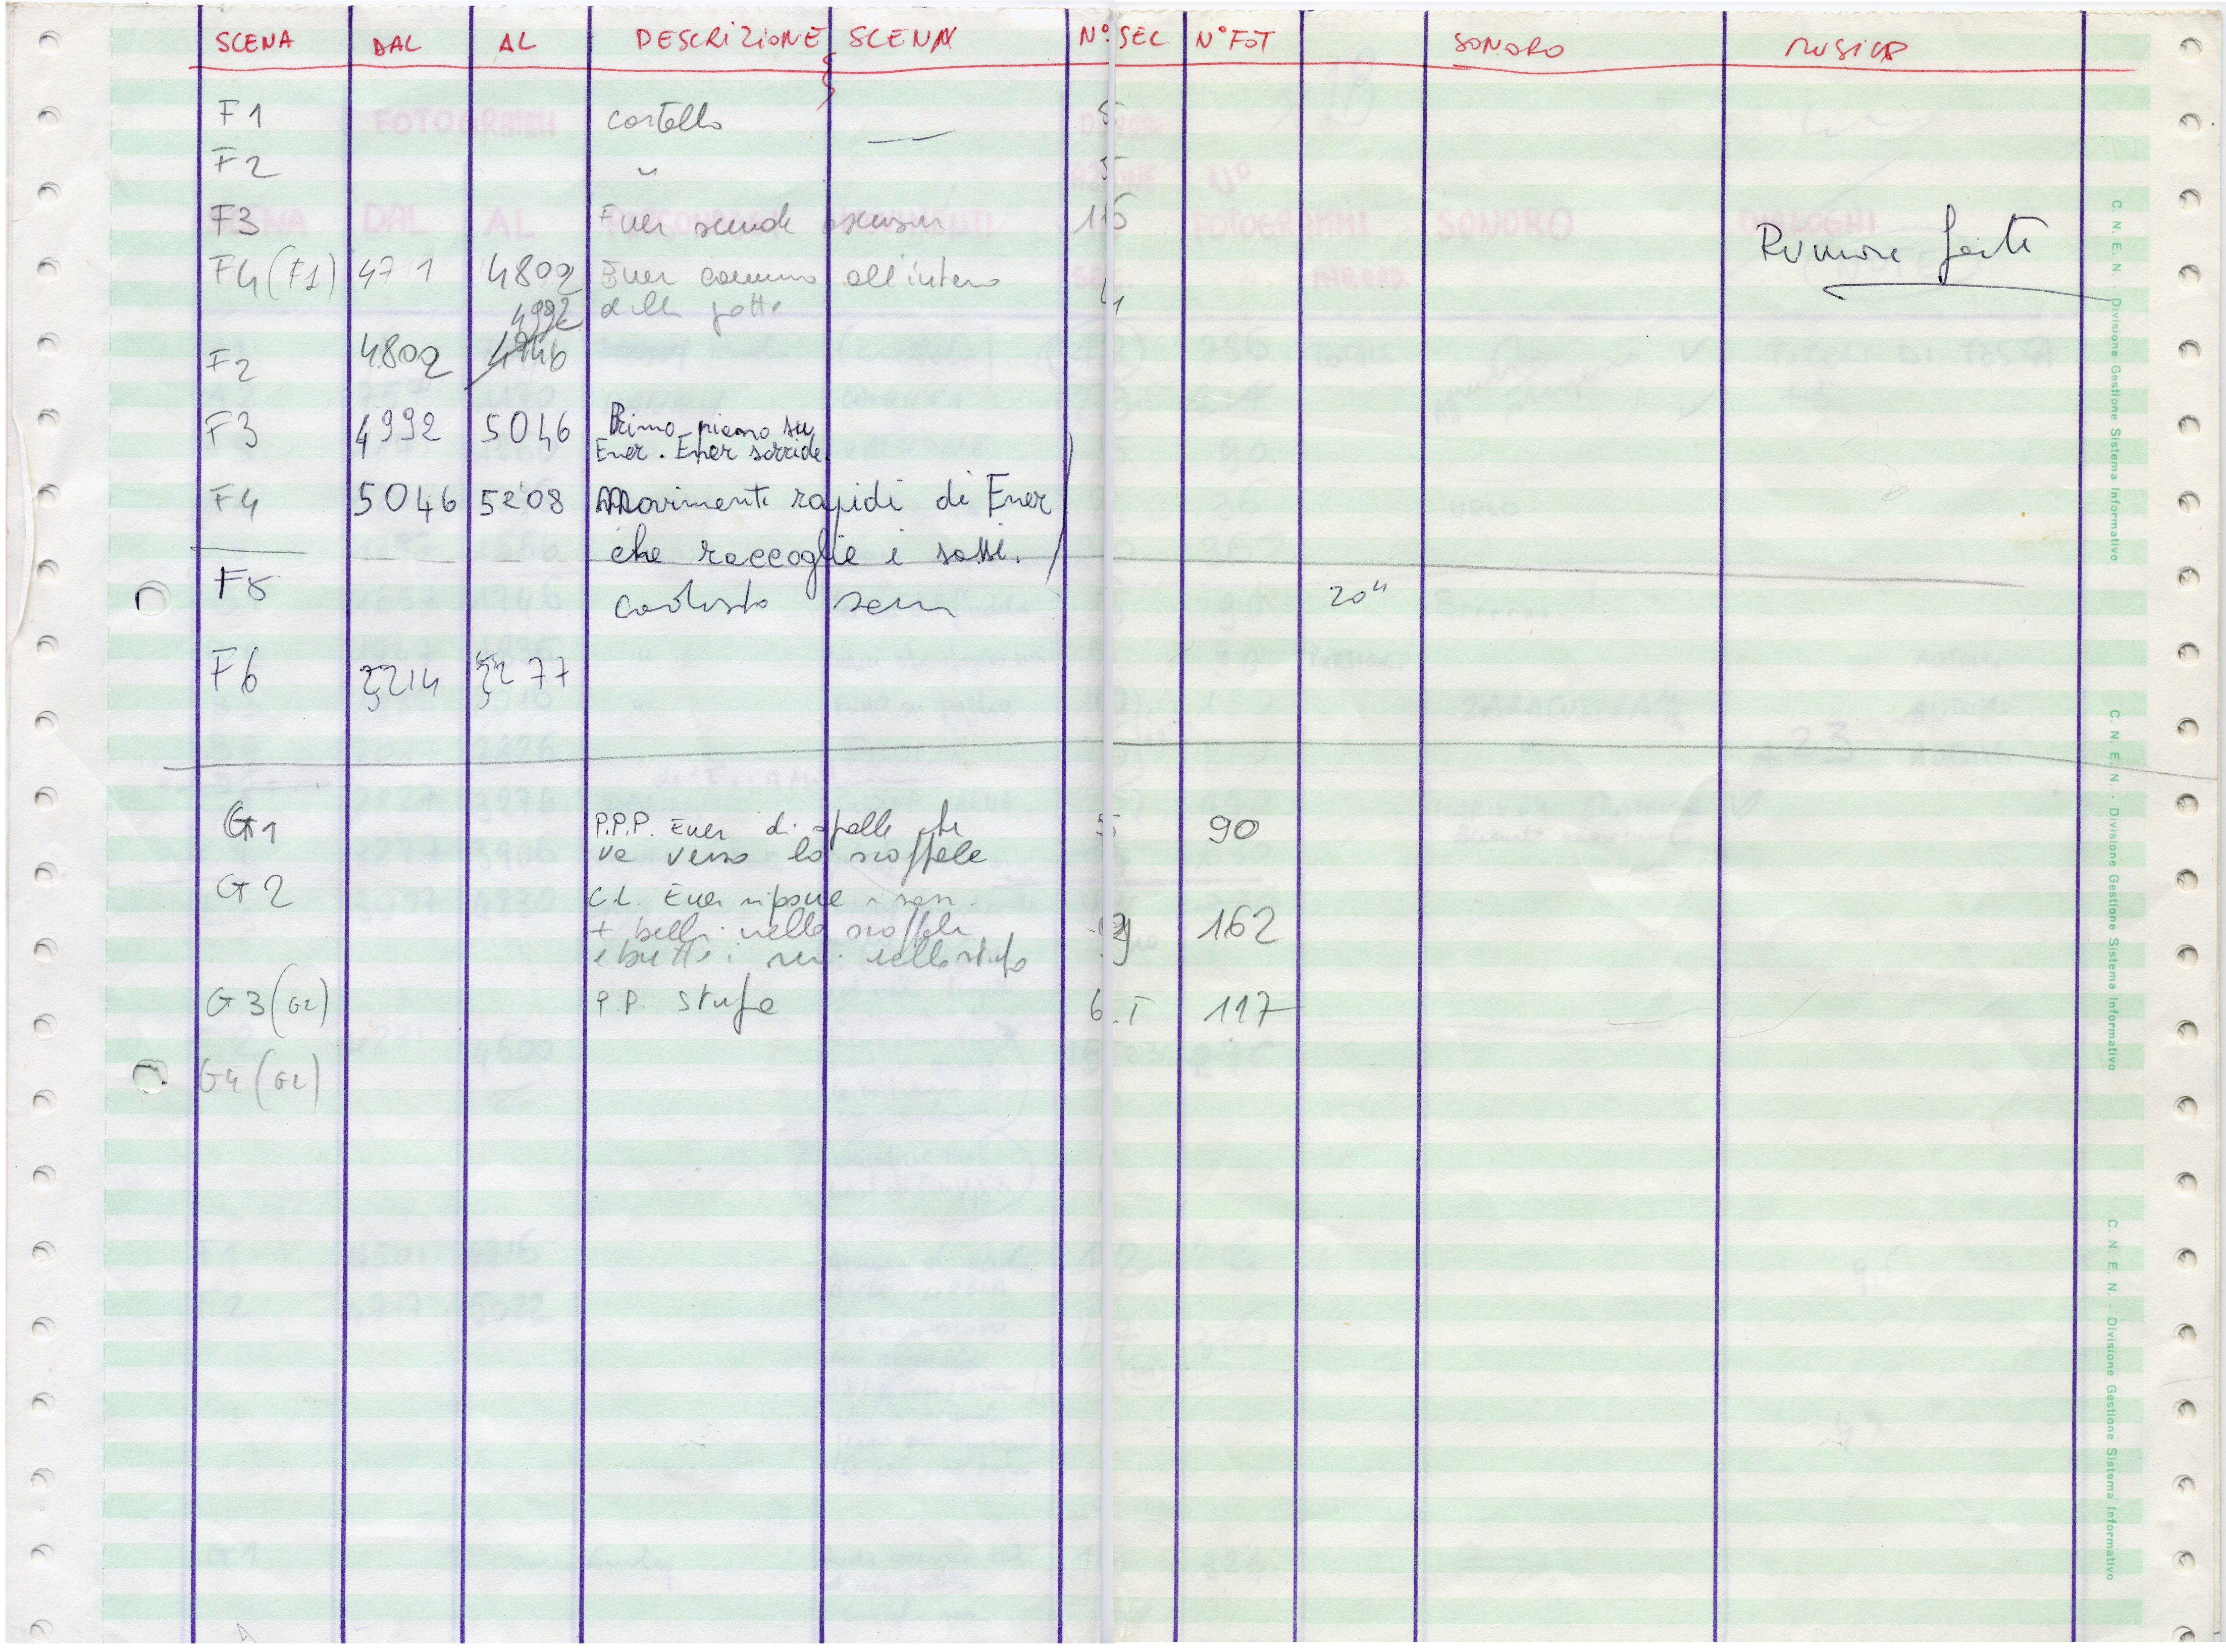 SCENA DAL AL DESCRIZIONE SCENA N° SEC N° FOT SONORO MUSICA
F1 cartello — 5
F2 " 5
F3 Ener scende 15
F4 (F1) 471 4802 Ener cammina all'interno 4
4992 della grotta
F2 4802 4946
Rumore forte
F3 4992 5046 Primo piano su
Ener. Ener sorride
F4 5046 5208 Movimenti rapidi di Ener
che raccoglie i sassi.
F5 20"
F6 5214 5277
G1 P.P.P. Ener di spalle che 5 90
va verso lo scaffale
G2 C.L. Ener ripone i sassi
+ belli nello scaffale 9 162
e butta i nella stufa
G3 (G2) P.P. stufa 6.5 117
G4 (G2)
C. N. E. N. - Divisione Gestione Sistema Informativo
C. N. E. N. - Divisione Gestione Sistema Informativo
C. N. E. N. - Divisione Gestione Sistema Informativo